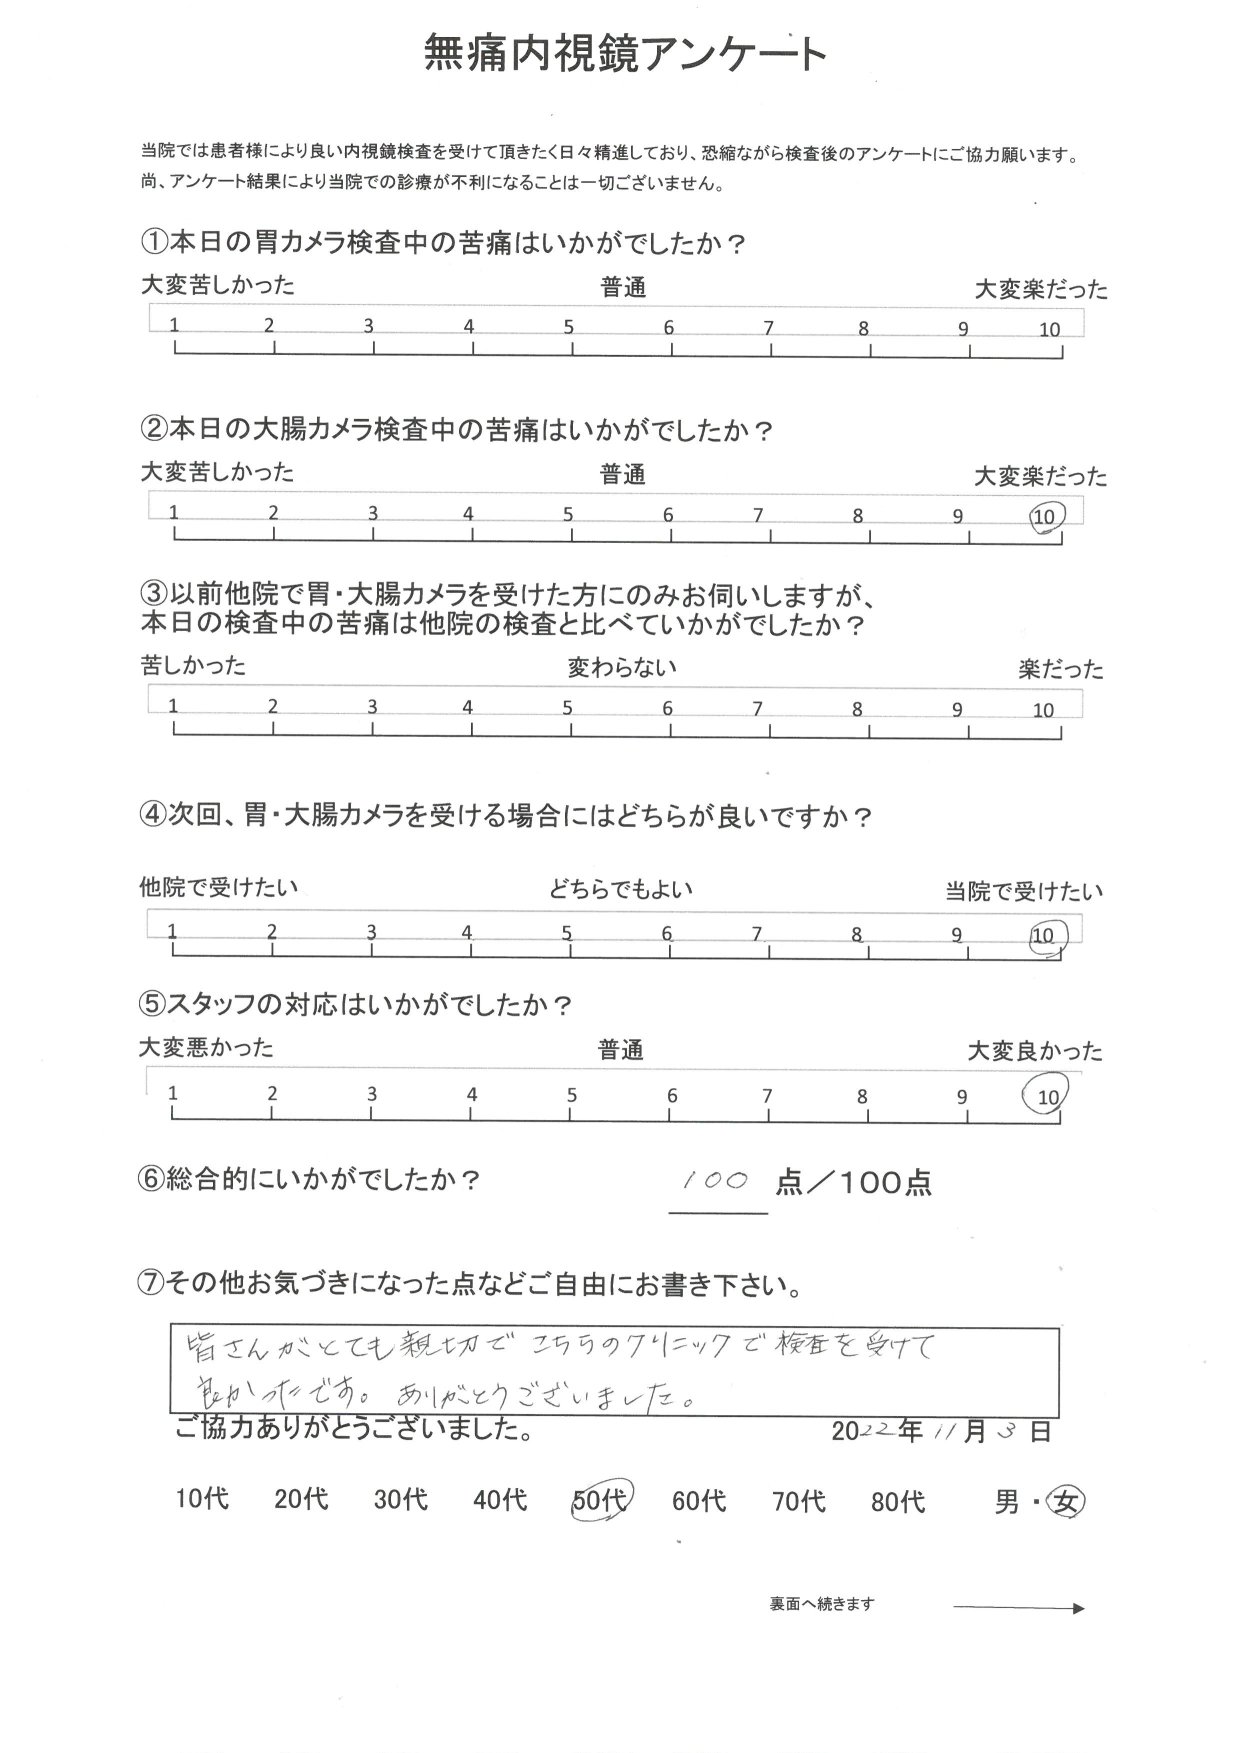 無痛内視鏡アンケート
当院では患者様により良い内視鏡検査を受けて頂きたく日々精進しており、恐縮ながら検査後のアンケートにご協力願います。
尚、アンケート結果により当院での診療が不利になることは一切ございません。
①本日の胃カメラ検査中の苦痛はいかがでしたか？
大変苦しかった 普通 大変楽だった
1 2 3 4 5 6 7 8 9 10
②本日の大腸カメラ検査中の苦痛はいかがでしたか？
大変苦しかった 普通 大変楽だった
1 2 3 4 5 6 7 8 9 10
③以前他院で胃・大腸カメラを受けた方にのみお伺いしますが、
本日の検査中の苦痛は他院の検査と比べていかがでしたか？
苦しかった 変わらない 楽だった
1 2 3 4 5 6 7 8 9 10
④次回、胃・大腸カメラを受ける場合にはどちらが良いですか？
他院で受けたい どちらでもよい 当院で受けたい
1 2 3 4 5 6 7 8 9 10
⑤スタッフの対応はいかがでしたか？
大変悪かった 普通 大変良かった
1 2 3 4 5 6 7 8 9 10
⑥総合的にいかがでしたか？ 100 点／100点
⑦その他お気づきになった点などご自由にお書き下さい。
皆さんがとても親切で こちらのクリニックで検査を受けて
良かったです。ありがとうございました。
ご協力ありがとうございました。 2022年 11月 3日
10代 20代 30代 40代 50代 60代 70代 80代 男・女
裏面へ続きます